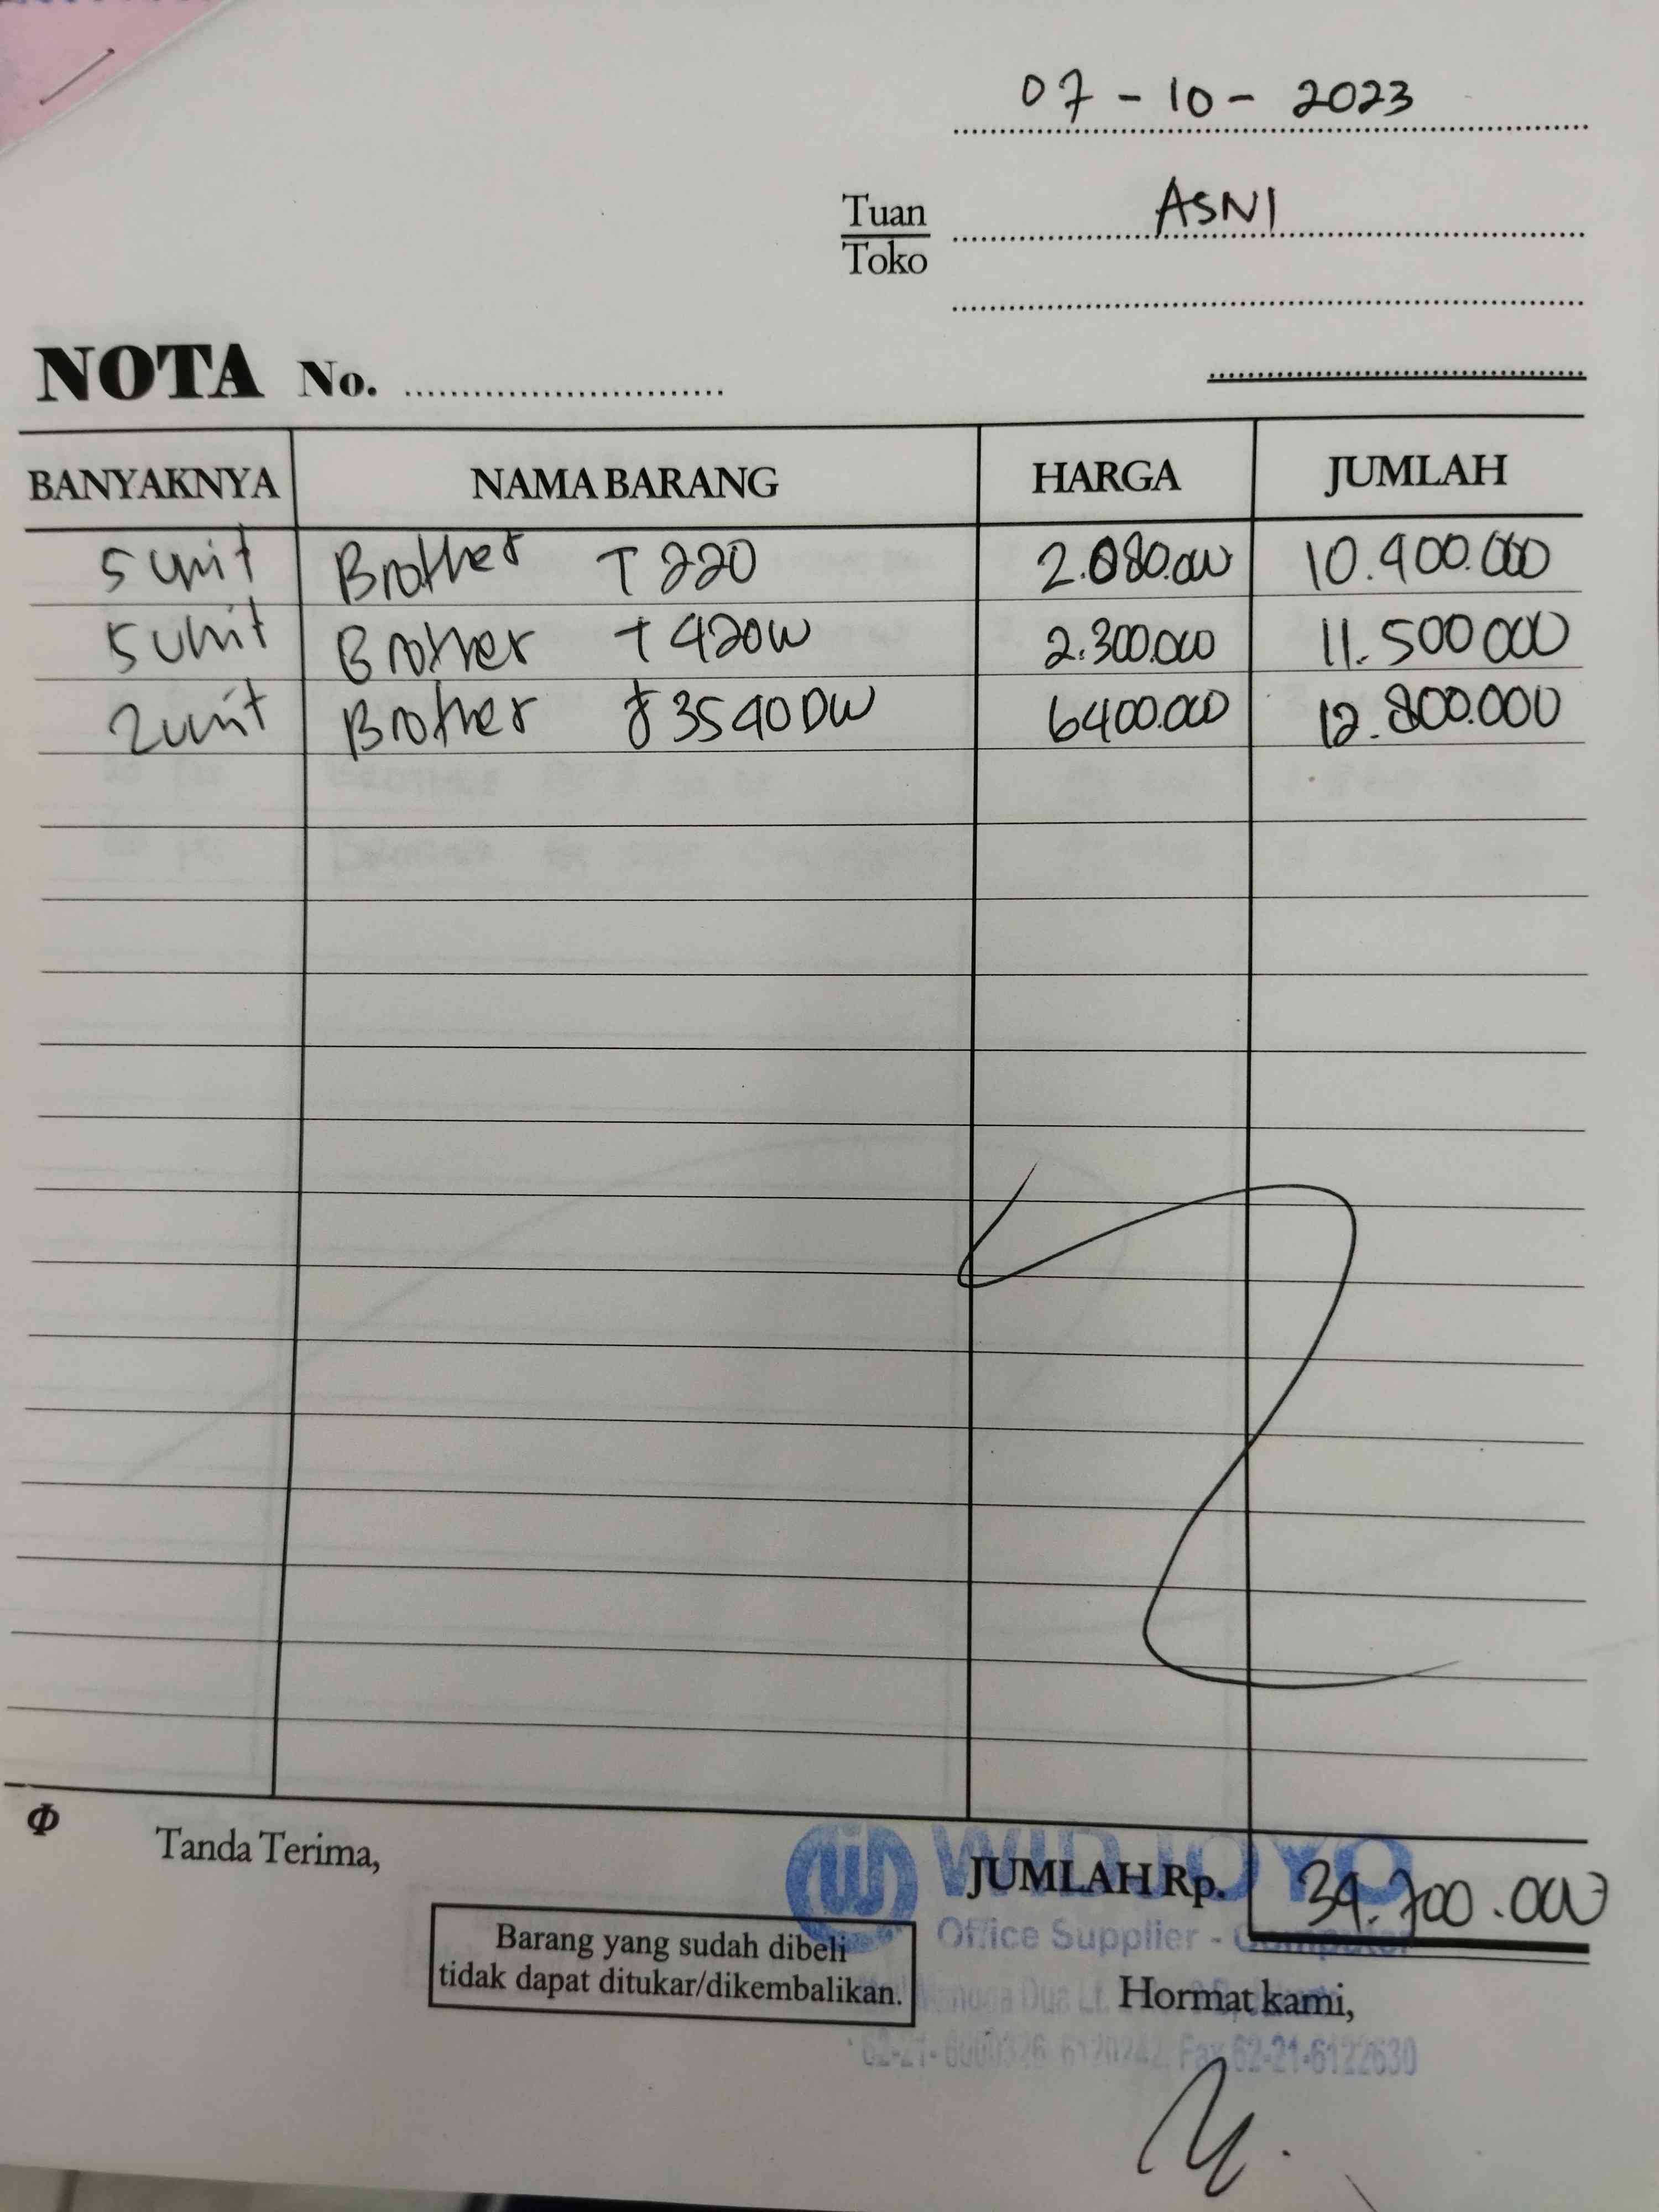 07 - 10 - 2023
Tuan ASNI
Toko
NOTA No.
BANYAKNYA NAMA BARANG HARGA JUMLAH
5 unit Brother T 220 2.080.000 10.400.000
5 unit Brother T 420W 2.300.000 11.500 000
2 unit Brother J 3540 DW 6400.000 12.800.000
Tanda Terima,
WIDJOYO
JUMLAH Rp. 34.700.000
Office Supplier - Computer
Barang yang sudah dibeli
tidak dapat ditukar/dikembalikan.
Dua Lt.
Hormat kami,
Fax 62-21-6122630